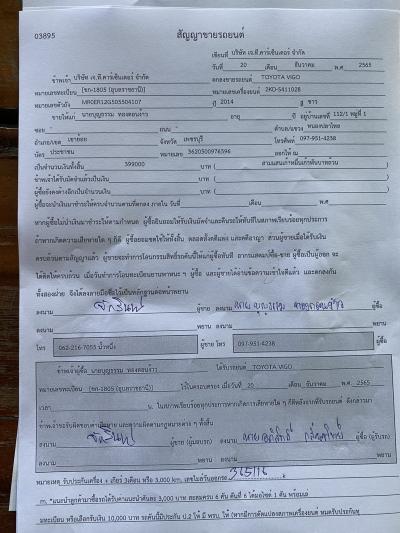 03895
สัญญาขายรถยนต์
เขียนที่ บริษัท เจ.ที.คาร์เซ็นเตอร์ จำกัด
วันที่ 20 เดือน ธันวาคม พ.ศ. 2565
ข้าพเจ้า บริษัท เจ.ที.คาร์เซ็นเตอร์ จำกัด ตกลงขายรถยนต์ TOYOTA VIGO
หมายเลขทะเบียน (ขก-1805 (อุบลราชธานี)) หมายเลขเครื่องยนต์ 2KD-5411028
หมายเลขตัวถัง MR0ER12G505504107 ปี 2014 สี ขาว
ขายให้แก่ นายบุญธรรม ทองดอนง่าว อายุ ปี อยู่บ้านเลขที่ 112/1 หมู่ที่ 1
ซอย - ถนน - ตำบล/แขวง หนองปลาไหล
อำเภอ/เขต เขาย้อย จังหวัด เพชรบุรี โทรศัพท์ 097-951-4238
บัตร ประชาชน หมายเลข 3620500976596 ออกให้ ณ
เป็นจำนวนเงินทั้งสิ้น 399000 บาท ( สามแสนเก้าหมื่นเก้าพันบาทถ้วน )
ข้าพเจ้าได้รับมัดจำแล้วเป็นเงิน บาท ( )
ผู้ซื้อยังคงค้างอีกเป็นจำนวนเงิน บาท ( )
ผู้ซื้อจะนำเงินมาชำระให้ครบจำนวนตามที่ตกลง ภายใน วันที่ เดือน พ.ศ.
หากผู้ซื้อไม่นำเงินมาชำระตามกำหนด ผู้ซื้อยินยอมให้ริบเงินมัดจำและคืนรถให้ทันทีในสภาพเรียบร้อยทุกประการ
ถ้าหากเกิดความเสียหายใด ๆ ก็ดี ผู้ซื้อยอมชดใช้ให้ทั้งสิ้น ตลอดทั้งคดีแพ่ง และคดีอาญา ส่วนผู้ขายเมื่อได้รับเงิน
ครบถ้วนตามสัญญาแล้ว ผู้ขายจะทำการโอนกรรมสิทธิ์รถคันนี้ให้แก่ผู้ซื้อทันที
ทั้งสองฝ่าย จึงได้ลงลายมือชื่อไว้เป็นหลักฐานต่อหน้าพยาน
ลงนาม ผู้ขาย ลงนาม ผู้ซื้อ
ลงนาม พยาน ลงนาม พยาน
โทร 062-216-7055 น้ำหนึ่ง ผู้ขาย โทร 097-951-4238 ผู้ซื้อ
ข้าพเจ้าผู้ซื้อ นายบุญธรรม ทองดอนง่าว ได้รับรถยนต์ TOYOTA VIGO
หมายเลขทะเบียน (ขก-1805 (อุบลราชธานี)) ไว้ในครอบครอง เมื่อวันที่ 20 เดือน ธันวาคม พ.ศ. 2565
เวลา น. ในสภาพเรียบร้อยทุกประการหากเกิดการเสียหายใด ๆ ก็ดีหลังจากที่รับรถยนต์ ดังกล่าวมา
ลงนาม ผู้ขาย (ผู้มอบรถ) ลงนาม ผู้ซื้อ (ผู้รับรถ)
ลงนาม พยาน ลงนาม พยาน
หมายเหตุ รับประกันเครื่อง + เกียร์ 3เดือน หรือ 3,000 km. เลขไมล์วันออกรถ 365116